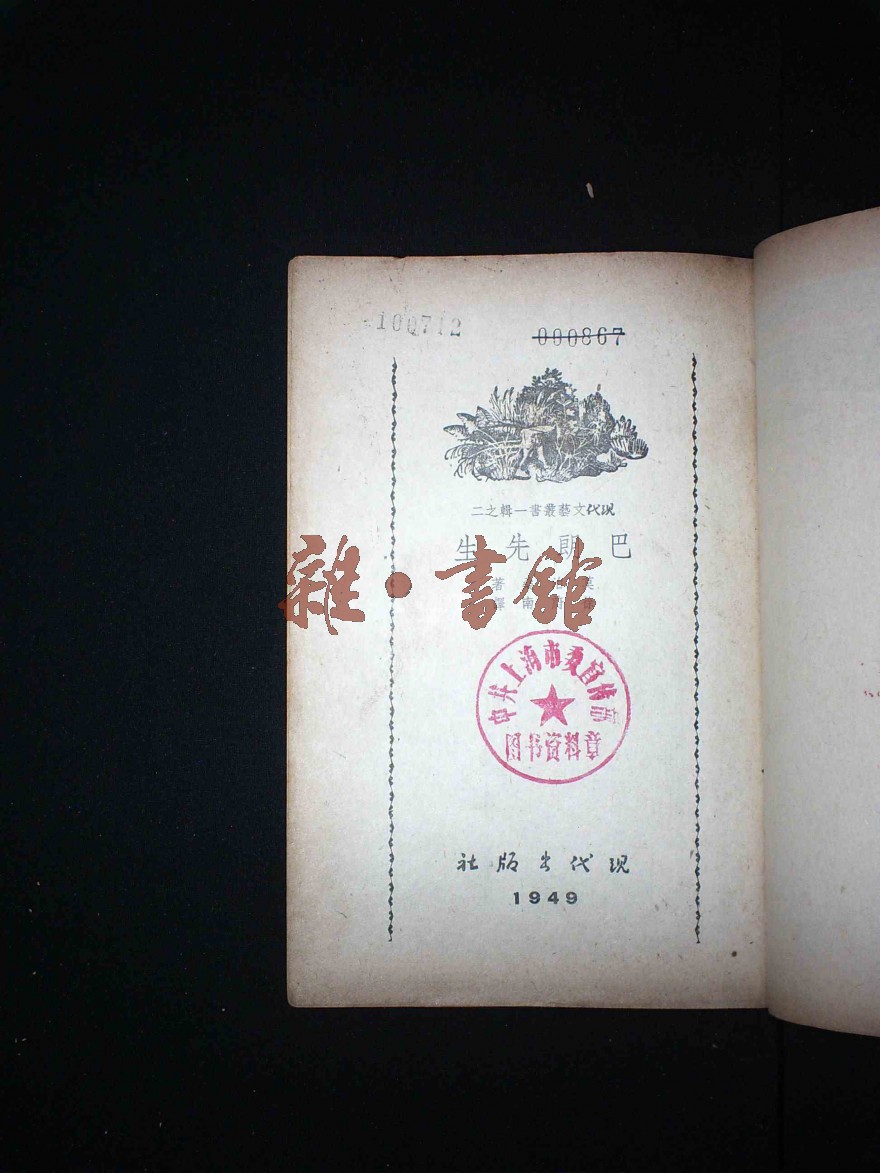 100712
000867
現代文藝叢書一輯之二
巴朗先生
著
南
譯
雜·書館
中共上海市委宣传部
图书资料章
現代出版社
1949